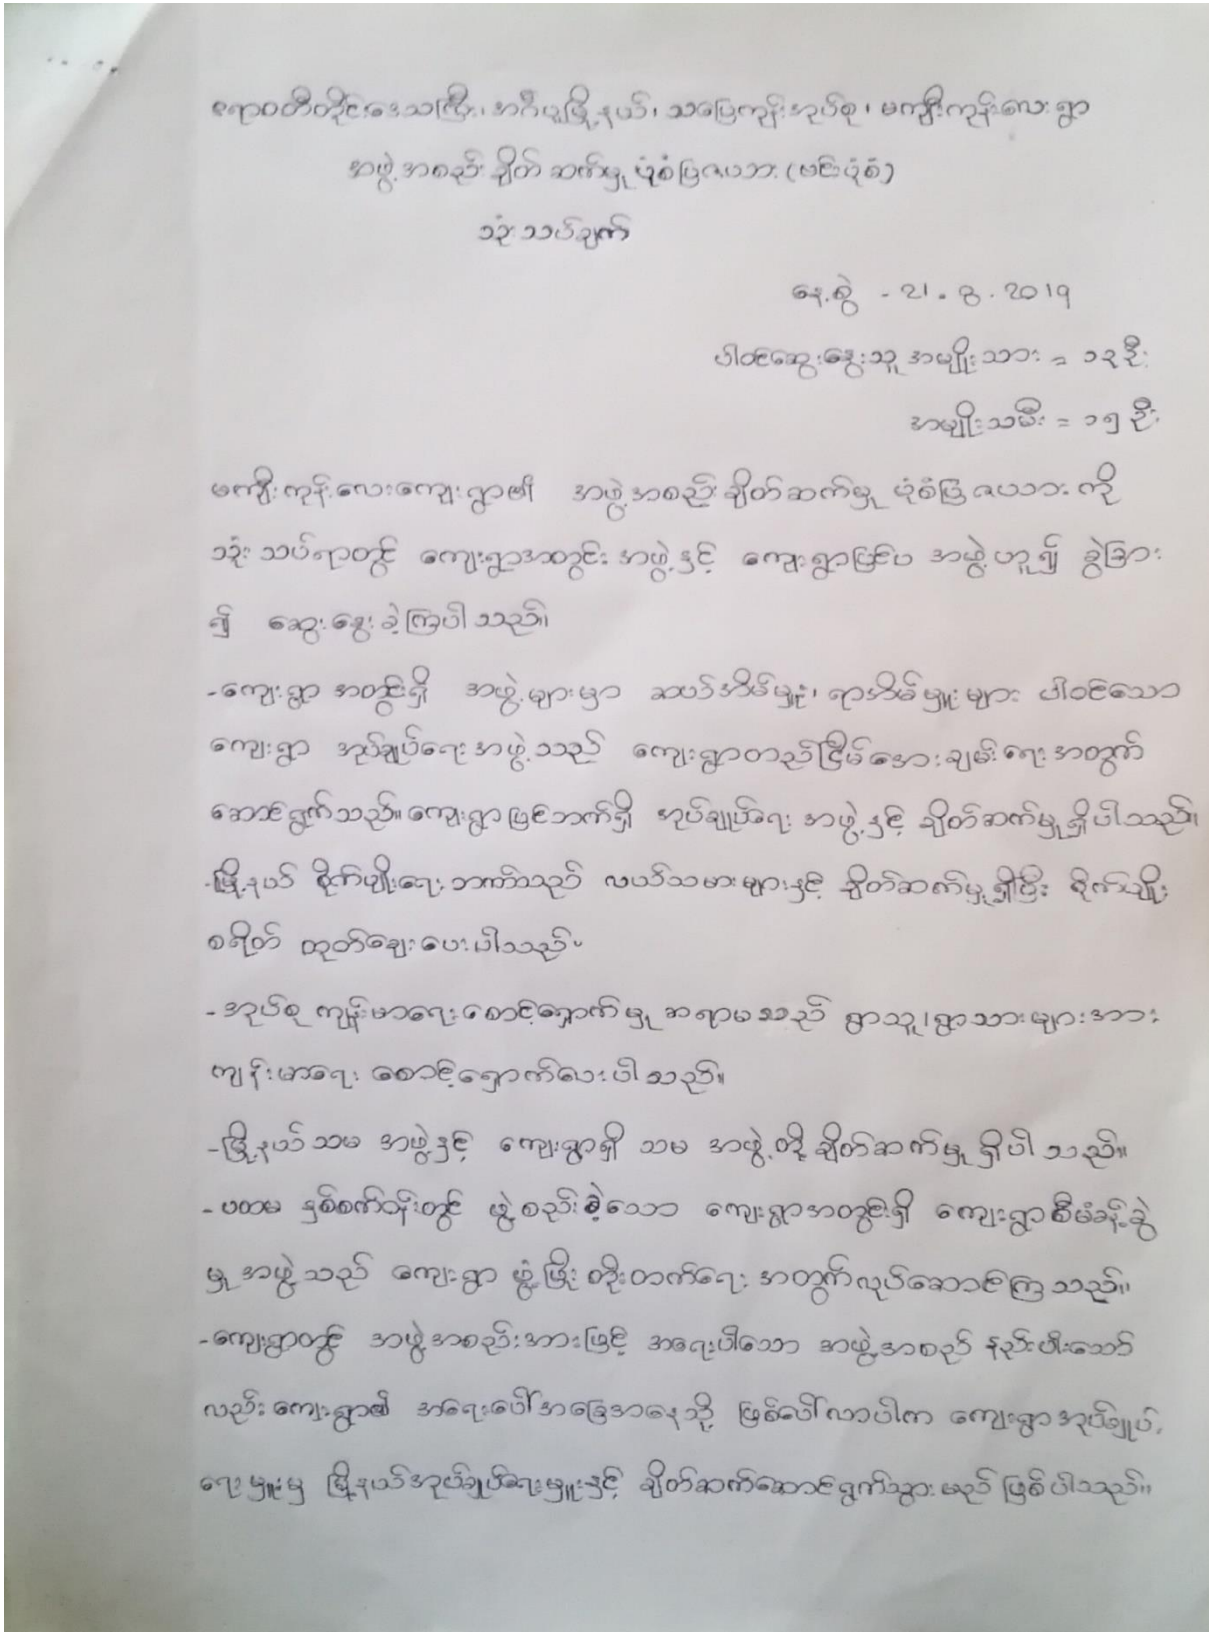 ဧရာဝတီတိုင်းဒေသကြီး၊ အင်္ဂပူမြို့နယ်၊ သပြေကုန်းအုပ်စု၊ မကျီးကုန်းလေးရွာ
အဖွဲ့အစည်း ချိတ်ဆက်မှု ပုံစံပြဇယား (ဗင်းပုံစံ)
သုံးသပ်ချက်
နေ့စွဲ - 21.8.2019
ပါဝင်ဆွေးနွေးသူ အမျိုးသား = ၁၃ ဦး
အမျိုးသမီး = ၁၅ ဦး
မကျီးကုန်းလေးကျေးရွာ၏ အဖွဲ့အစည်းချိတ်ဆက်မှု ပုံစံပြဇယားကို
သုံးသပ်ရာတွင် ကျေးရွာအတွင်းအဖွဲ့နှင့် ကျေးရွာပြင်ပ အဖွဲ့ဟူ၍ ခွဲခြား
၍ ဆွေးနွေးခဲ့ကြပါသည်။
-ကျေးရွာအတွင်းရှိ အဖွဲ့များမှာ ဆယ်အိမ်မှူး၊ ရာအိမ်မှူးများ ပါဝင်သော
ကျေးရွာ အုပ်ချုပ်ရေးအဖွဲ့သည် ကျေးရွာတည်ငြိမ်အေးချမ်းရေးအတွက်
ဆောင်ရွက်သည်။ ကျေးရွာပြင်ဘက်ရှိ အုပ်ချုပ်ရေး အဖွဲ့နှင့် ချိတ်ဆက်မှုရှိပါသည်။
-မြို့နယ် စိုက်ပျိုးရေးဘဏ်သည် လယ်သမားများနှင့် ချိတ်ဆက်မှုရှိပြီး စိုက်ပျိုး
စရိတ် ထုတ်ချေးပေးပါသည်။
-အုပ်စု ကျန်းမာရေးစောင့်ရှောက်မှု ဆရာမသည် ရွာသူ၊ရွာသားများအား
ကျန်းမာရေး စောင့်ရှောက်ပေးပါသည်။
-မြို့နယ်သမ အဖွဲ့နှင့် ကျေးရွာရှိ သမ အဖွဲ့တို့ ချိတ်ဆက်မှု ရှိပါသည်။
-ပထမ နှစ်စက်ဝန်းတွင် ဖွဲ့စည်းခဲ့သော ကျေးရွာအတွင်းရှိ ကျေးရွာစီမံခန့်ခွဲ
မှုအဖွဲ့သည် ကျေးရွာ ဖွံ့ဖြိုးတိုးတက်ရေး အတွက်လုပ်ဆောင်ကြသည်။
-ကျေးရွာတွင် အဖွဲ့အစည်းအားဖြင့် အရေးပါသော အဖွဲ့အစည် နည်းပါးသော်
လည်းကျေးရွာ၏ အရေးပေါ်အခြေအနေသို့ ဖြစ်ပေါ်လာပါက ကျေးရွာအုပ်ချုပ်
ရေးမှူးမှ မြို့နယ်အုပ်ချုပ်ရေးမှူးနှင့် ချိတ်ဆက်ဆောင်ရွက်သွားမည် ဖြစ်ပါသည်။